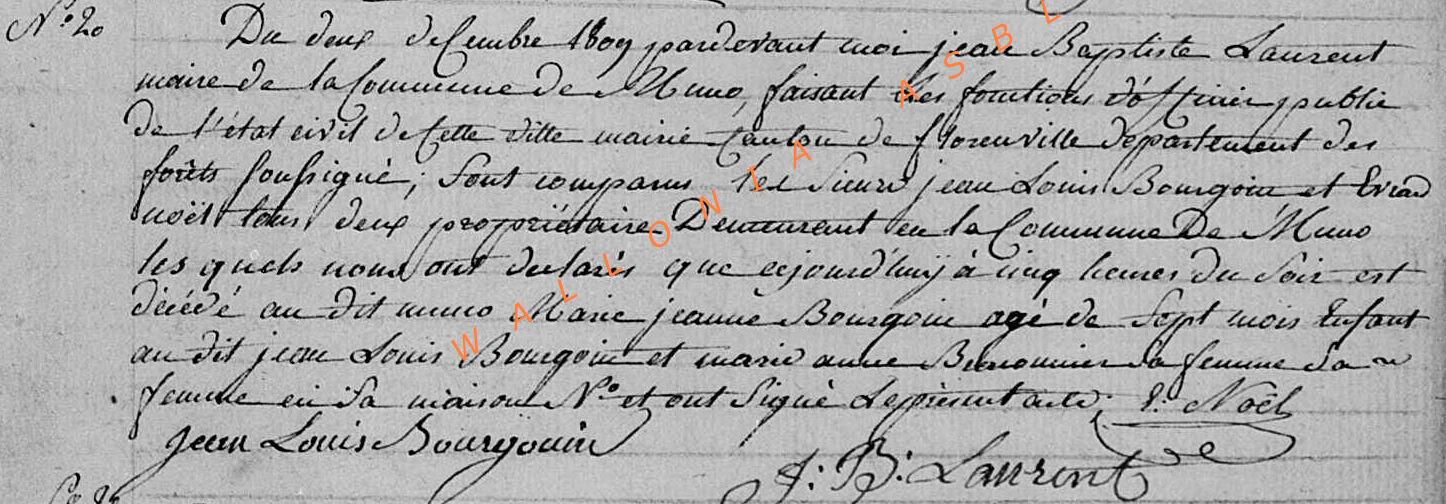 N.o 20
Du deux decembre 1809 pardevant moi jean Baptiste Laurent
maire de la Commune de Muno, faisant les fonctions d'officier public
de l'état civil de Cette ville mairie Canton de florenville departement des
forêts soussigné; sont comparus les Sieurs jean Louis Bourgoin et Evrard
noël tous deux propriétaire Demeurant en la Commune De Muno
les quels nous ont declarés que cejourd'huÿ à cinq heures du Soir est
décédé au dit muno Marie jeanne Bourgoin agé de Sept mois Enfant
au dit jean Louis Bourgoin et marie anne sa femme Sa
femme en Sa maison N.o et ont Signé Le présent acte; E: Noël
Jean Louis Bourgouin
J: B: Laurent
WALLONIA ASBL